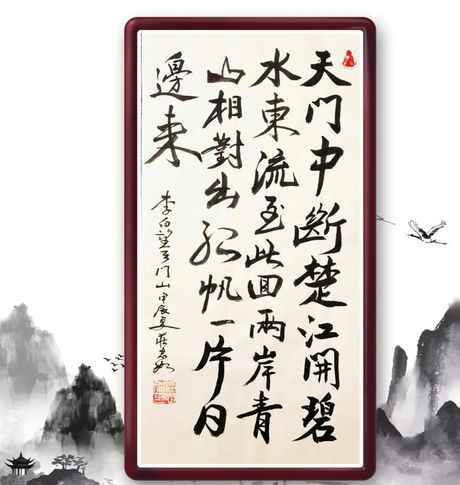 天門中斷楚江開碧
水東流至此回兩岸青
山相對出孤帆一片日
邊来
李白望天門山甲辰夏莊